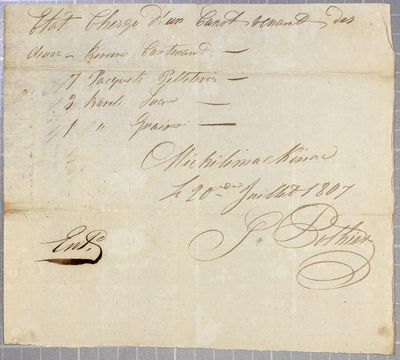 Etat Charge D'un Canot venant des
deux Riviere Contenant —
7 Pacquets Pelteries —
3 Barils Sucre —
1 " Grains —
Michilimackinac
Le 20me Juillet 1807
Entd
J" Pothier